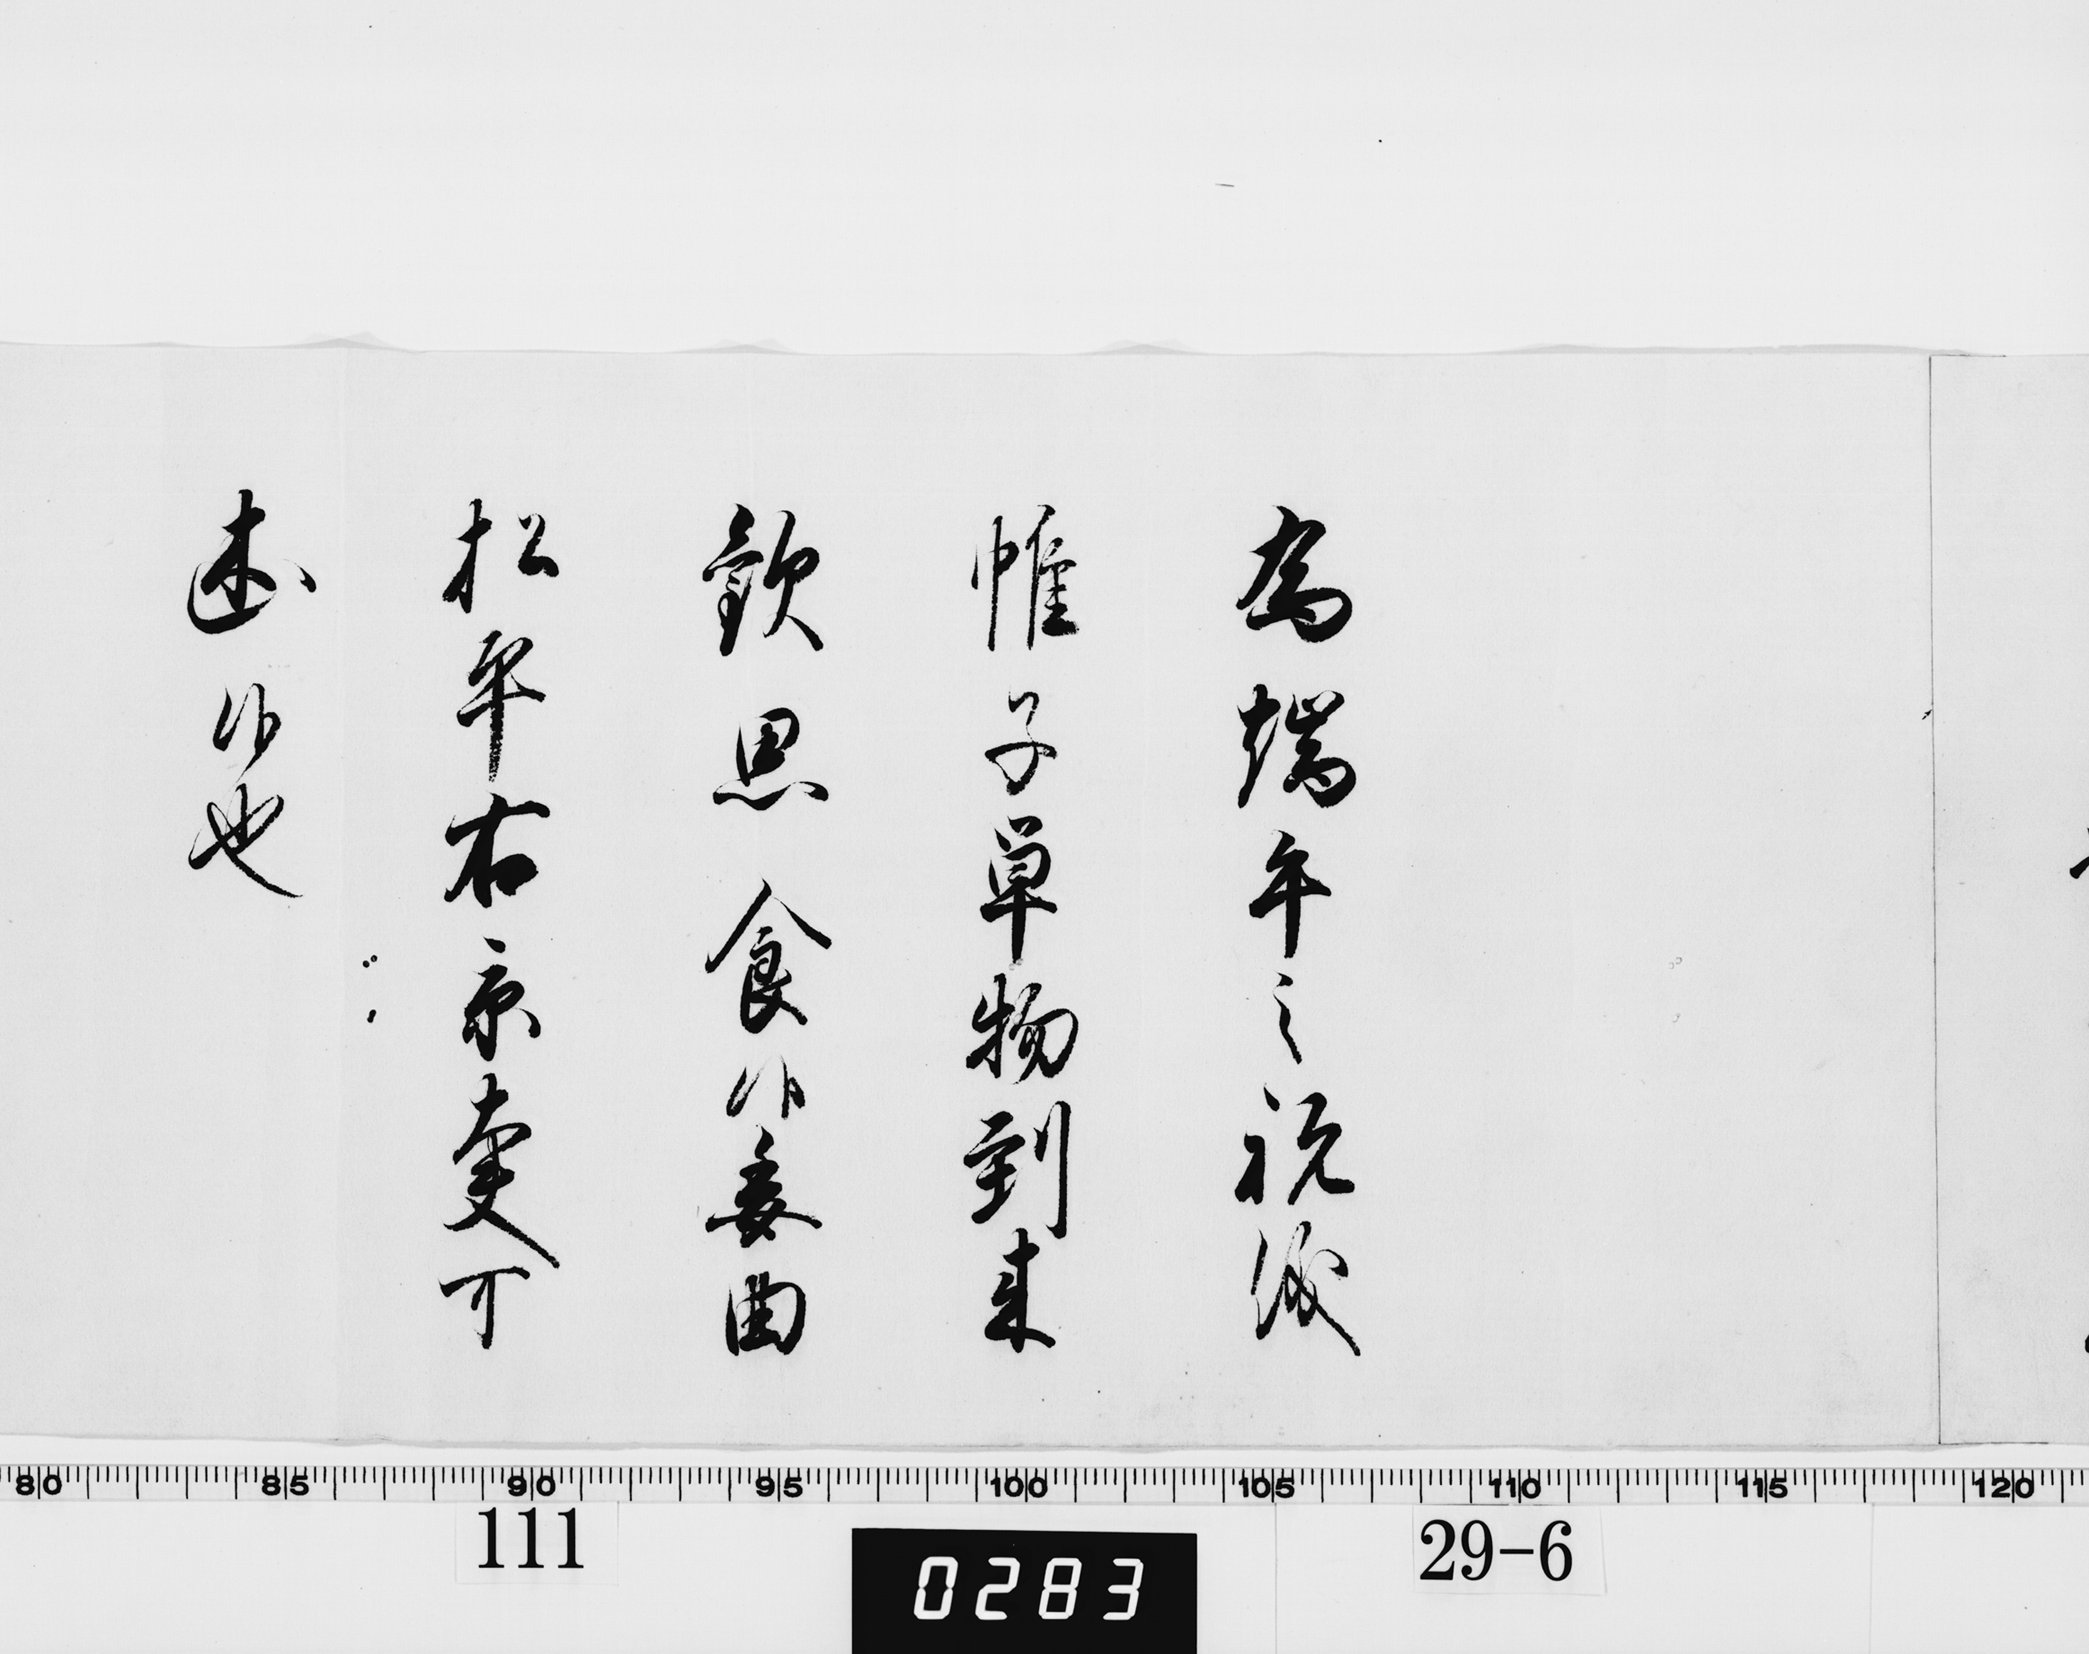 為端午之祝儀
帷子単物到来
歓思食候委曲
松平右京大夫可
述候也
80 85 90 95 100 105 110 115 120
111
0283
29-6